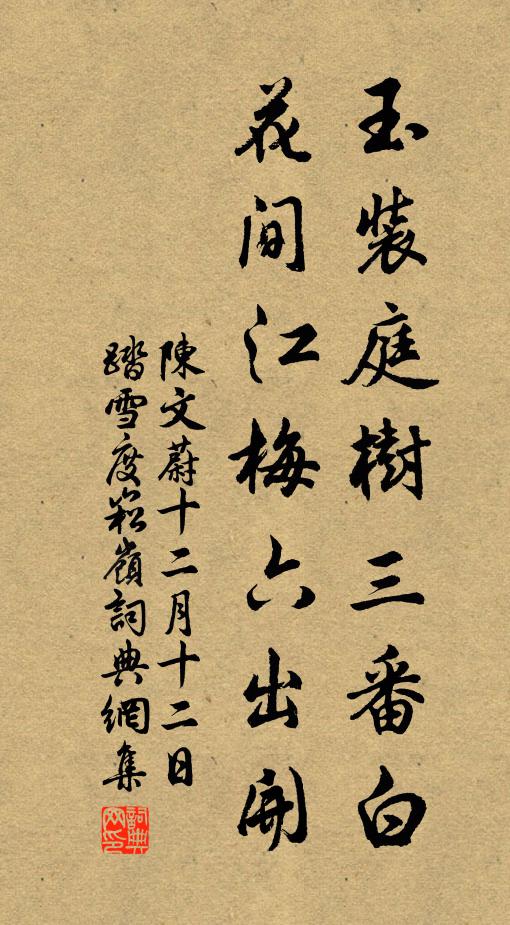 玉裝庭樹三番白
花間江梅六出開
陳文蔚十二月十二日
踏雪度箬嶺詞典網集
詞典
网印